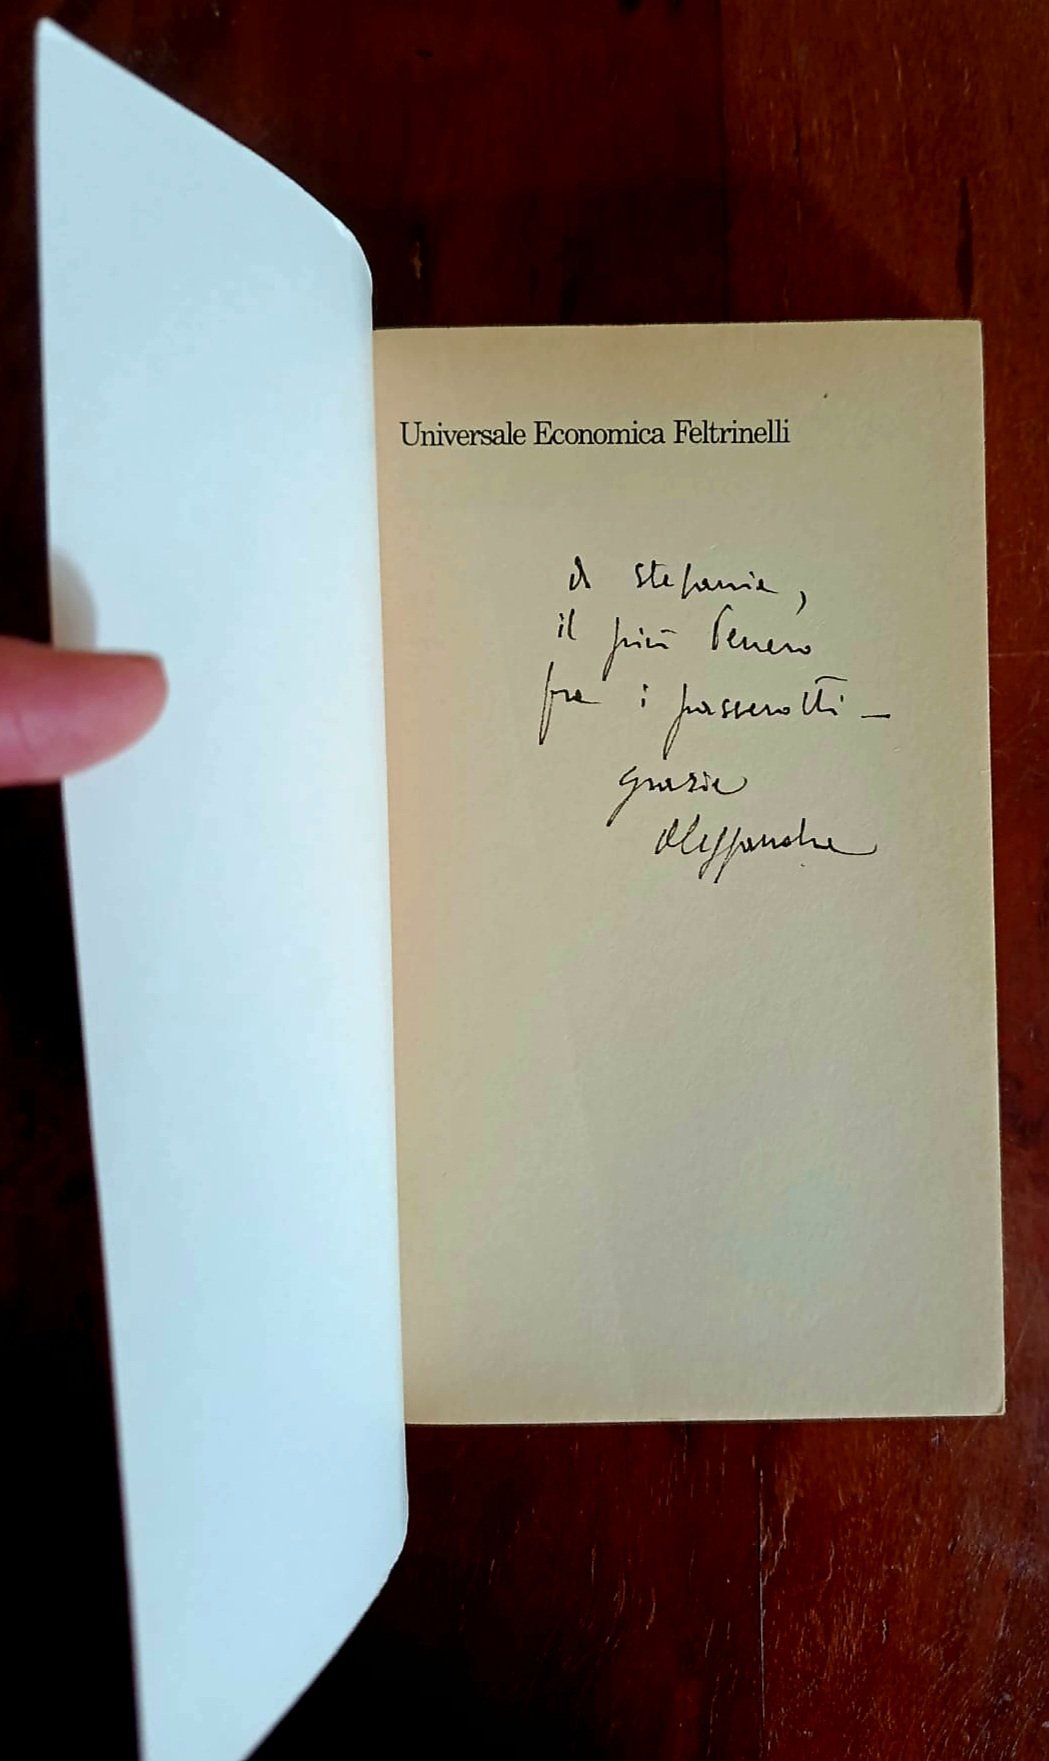 Universale Economica Feltrinelli
A Stefania,
il più tenero
fra i passerotti —
grazie
Alessandra